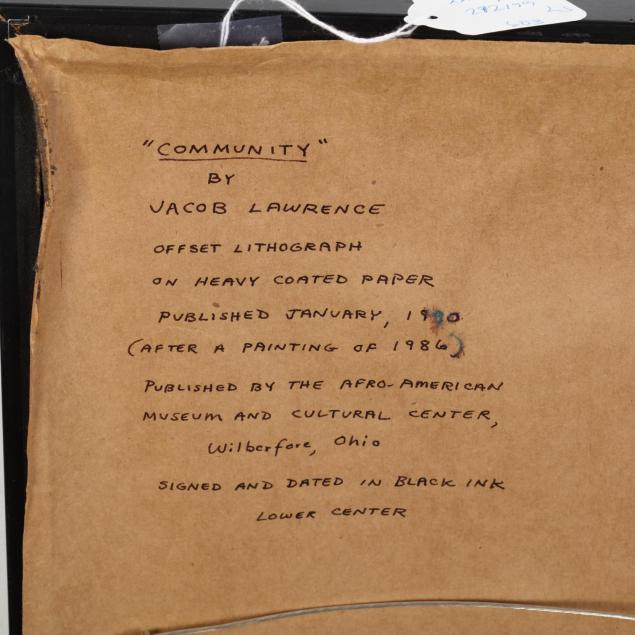 282179
608
"COMMUNITY"
BY
JACOB LAWRENCE
OFFSET LITHOGRAPH
ON HEAVY COATED PAPER
PUBLISHED JANUARY, 1990
(AFTER A PAINTING OF 1986)
PUBLISHED BY THE AFRO-AMERICAN
MUSEUM AND CULTURAL CENTER,
Wilberfore, Ohio
SIGNED AND DATED IN BLACK INK
LOWER CENTER